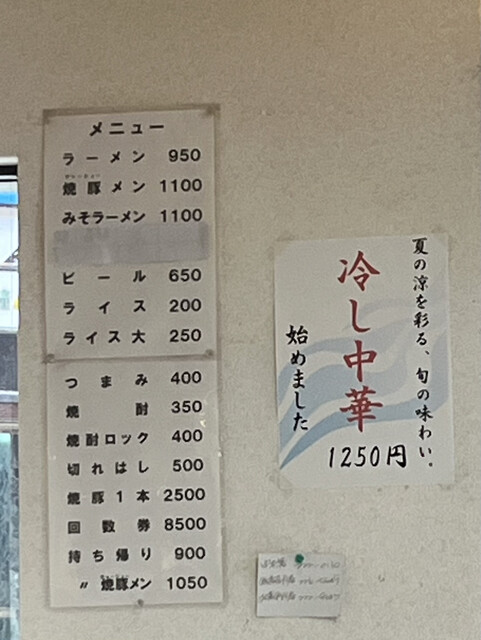 メニュー
ラーメン 950
焼豚メン 1100
みそラーメン 1100
ビール 650
ライス 200
ライス大 250
つまみ 400
焼酎 350
焼酎ロック 400
切れはし 500
焼豚1本 2500
回数券 8500
持ち帰り 900
〃 焼豚メン 1050
夏の涼を彩る、旬の味わい。
冷し中華
始めました
1250円